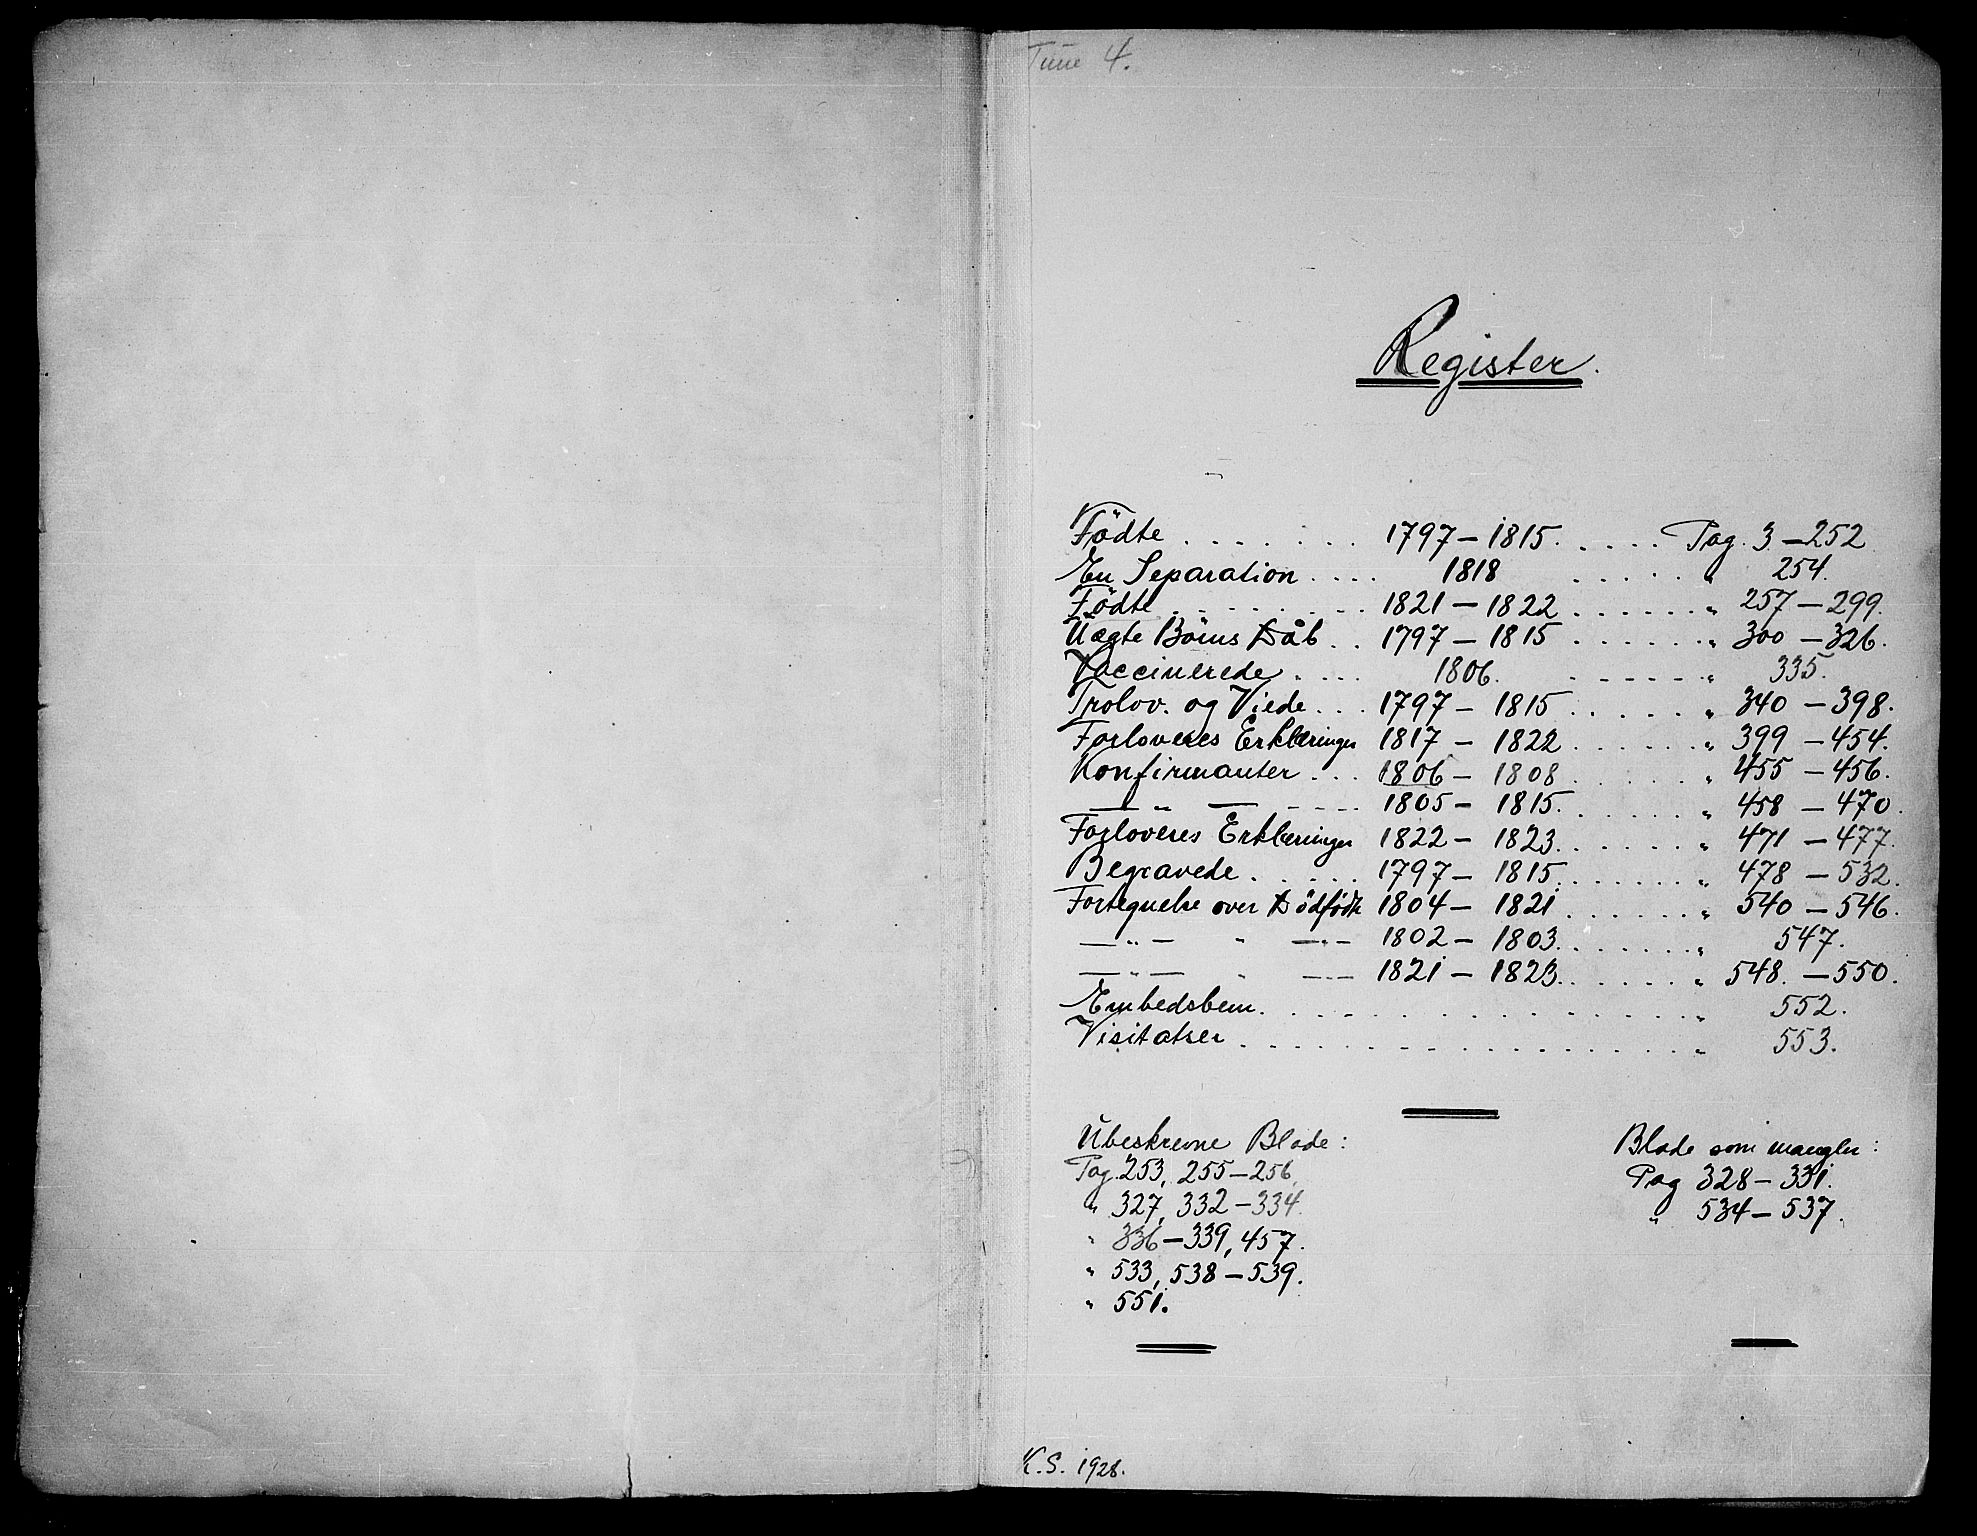 Tune 4.
Register.
Födte . . . . . . . 1797 – 1815. . . . . Pag. 3 – 252
En Separation . . . . 1818 . . . . . „ 254.
Födte . . . . . . . . 1821 – 1822 . . . . . . „ 257 – 299.
Uægte Börns Dåb . . 1797 – 1815 . . . . . . „ 300 – 326.
Vaccinerede . . . . 1806. - - - - - - „ 335.
Trolov. og Viede . . . 1797 – 1815 . . . . . . „ 340 – 398.
Forloveres Erklæringer 1817 – 1822 . . . . . . „ 399 – 454.
Konfirmanter . . . 1806 – 1808 . . . . . „ 455 – 456.
— „ — - - - - 1805 – 1815. . . . . . . „ 458 – 470.
Forloveres Erklæringer 1822 – 1823. . . . . . . „ 471 – 477.
Begravede . . . . . 1797 – 1815. . . . . . . „ 478 – 532.
Fortegnelse over Dödfödte 1804 – 1821 . . . . . . „ 540 – 546.
— „ — „ — „ — 1802 – 1803. . . . . . . „ 547.
— „ — „ — „ — 1821 – 1823. . . . . . . „ 548. – 550.
Embedsbem. . . . . . . . . . . . . . . . „ 552.
Visitatser . . . . . . . . . . . . . . . . . „ 553.
Ubeskrevne Blade :
Pag. 253, 255 – 256,
„ 327, 332 – 334.
„ 336 – 339, 457.
„ 533, 538 – 539.
„ 551.
Blade som mangler :
Pag 328 – 331.
„ 534 – 537.
K. S. 1928.